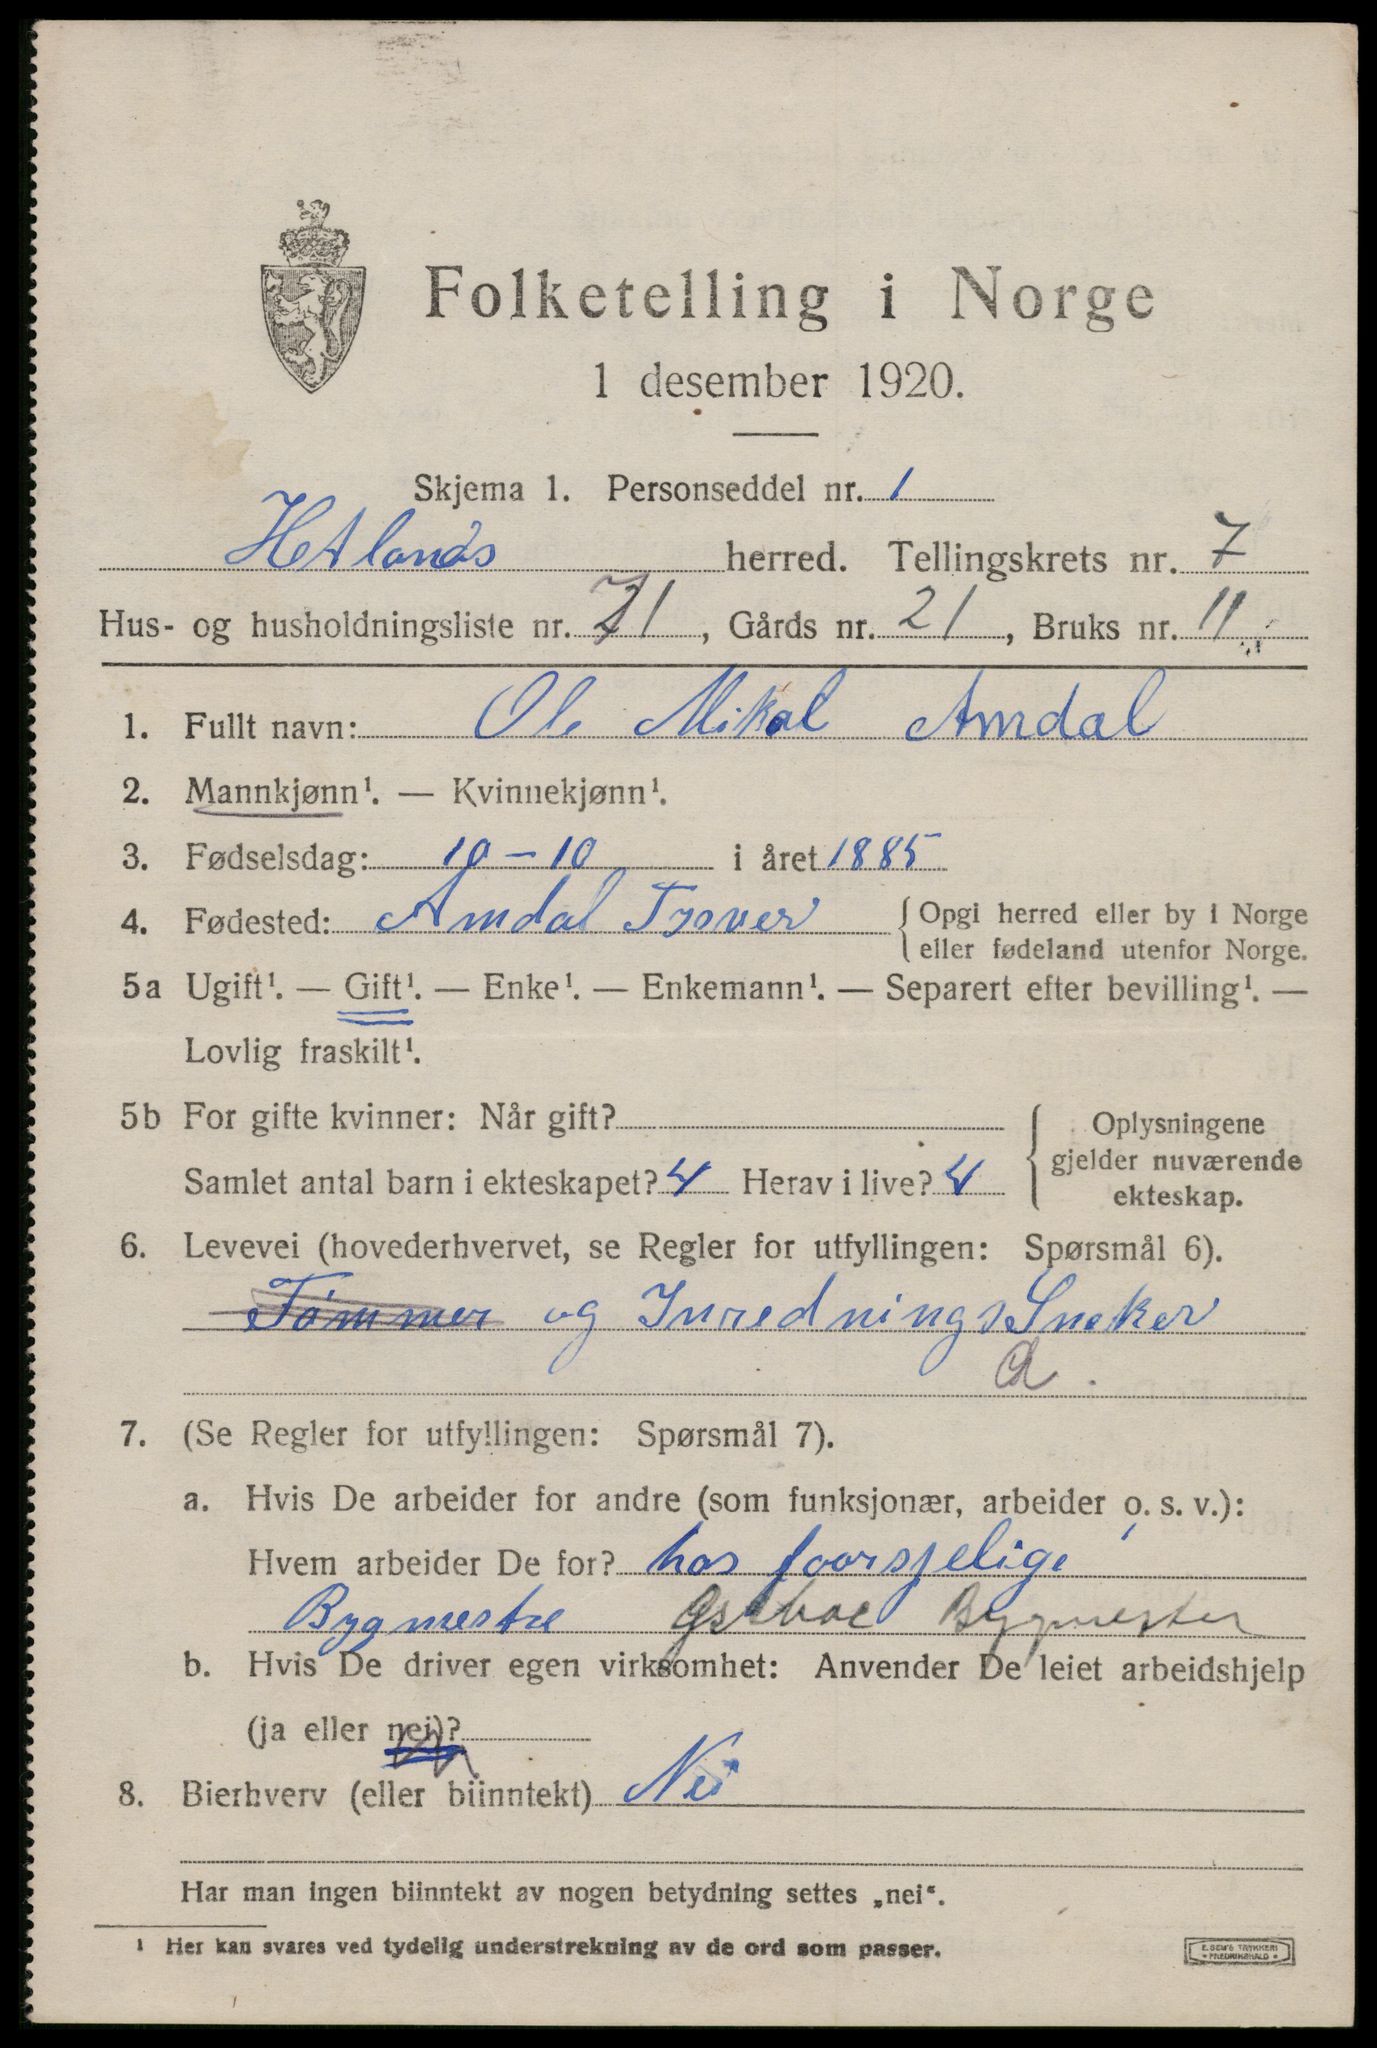 Folketelling i Norge
1 desember 1920.
Skjema 1. Personseddel nr. 1
Hetlands herred. Tellingskrets nr. 7
Hus- og husholdningsliste nr. 71, Gårds nr. 21, Bruks nr. 11
1. Fullt navn: Ole Mikal Amdal
2. Mannkjønn¹. — Kvinnekjønn¹.
3. Fødselsdag: 10-10 i året 1885
4. Fødested: Amdal Tysver {Opgi herred eller by i Norge
eller fødeland utenfor Norge.
5a Ugift¹. — Gift¹. — Enke¹. — Enkemann¹. — Separert efter bevilling¹. —
Lovlig fraskilt¹.
5b For gifte kvinner: Når gift?
Samlet antal barn i ekteskapet? 4 Herav i live? 4
Oplysningene
gjelder nuværende
ekteskap.
6. Levevei (hovederhvervet, se Regler for utfyllingen: Spørsmål 6).
Tømmer og InredningsSneker
a.
7. (Se Regler for utfyllingen: Spørsmål 7).
a. Hvis De arbeider for andre (som funksjonær, arbeider o. s. v.):
Hvem arbeider De for? hos foorsjelige
Bygmestre Bygmester
b. Hvis De driver egen virksomhet: Anvender De leiet arbeidshjelp
(ja eller nei)?
8. Bierhverv (eller biinntekt) Nei
Har man ingen biinntekt av nogen betydning settes „nei“.
¹ Her kan svares ved tydelig understrekning av de ord som passer.
E. SEM'S TRYKKERI
FREDRIKSHALD